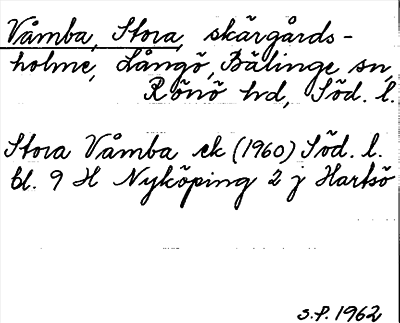 Våmba, Stora, skärgårds-
holme, Långö, Bälinge sn,
Rönö hd, Söd. l.
Stora Våmba ek (1960) Söd. l.
bl. 9 H Nyköping 2 j Hartsö
S.P. 1962